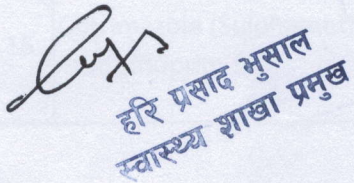 हरि प्रसाद भुसाल
स्वास्थ्य शाखा प्रमुख